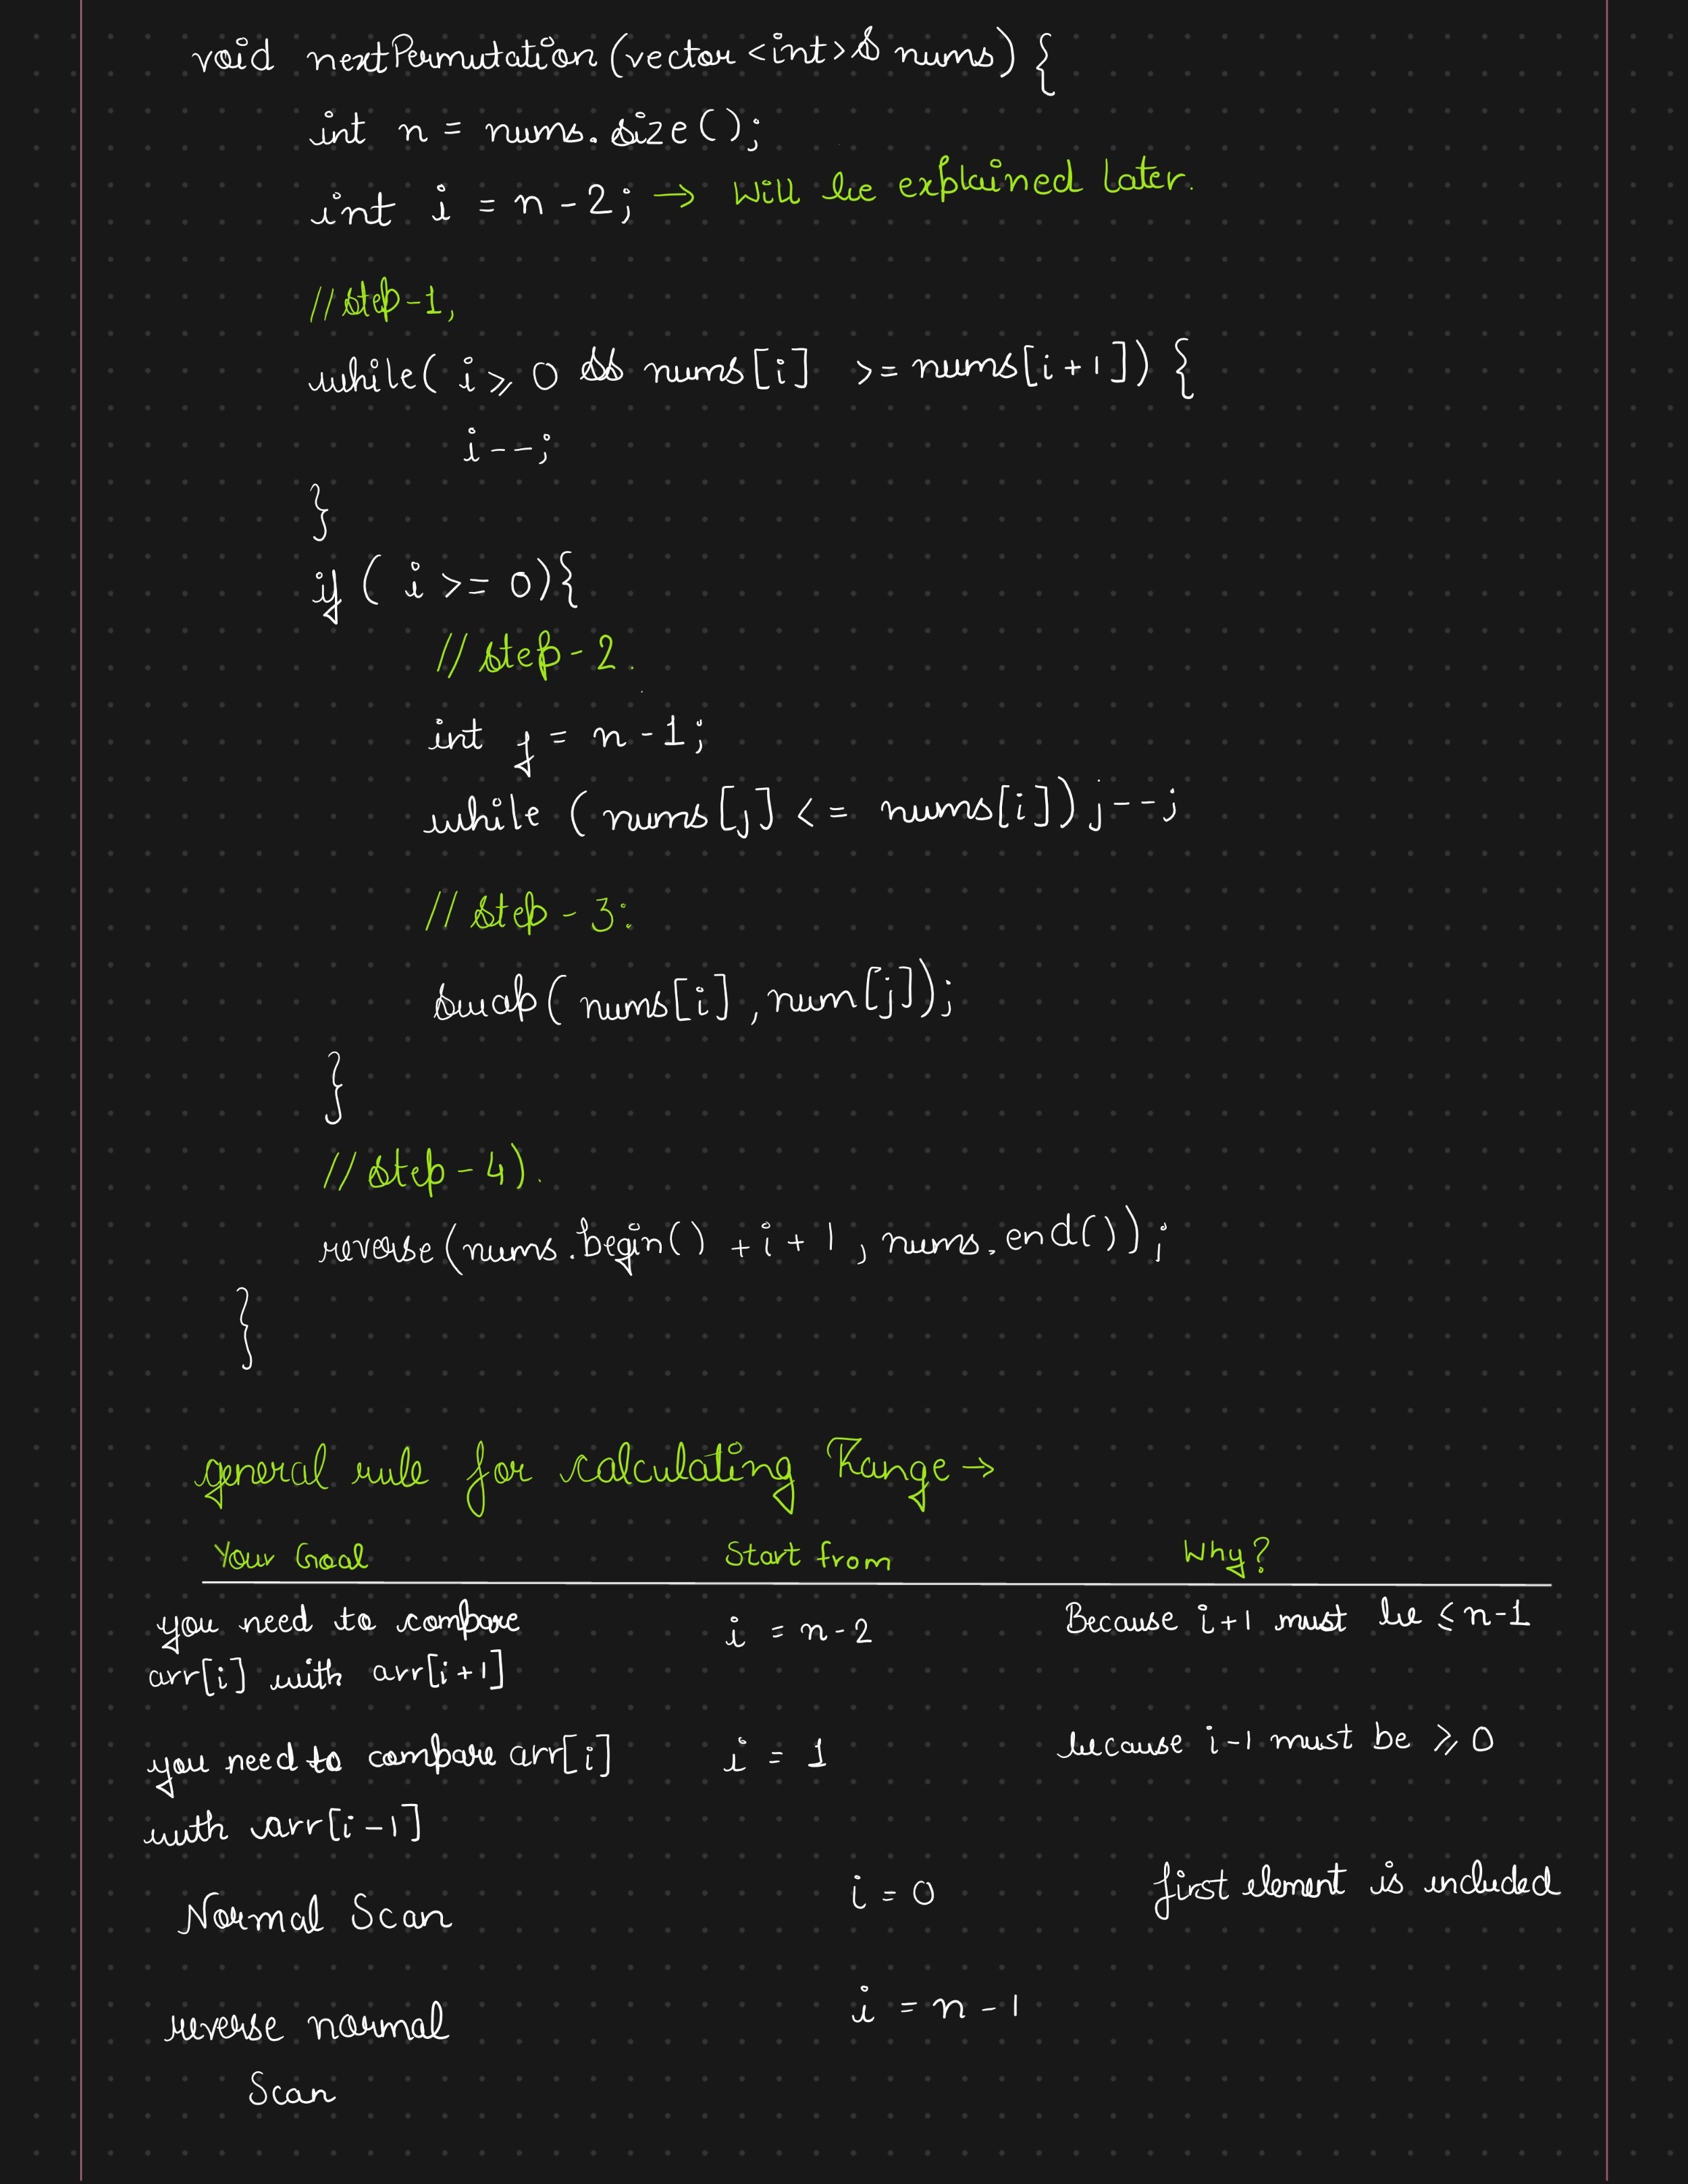 void nextPermutation (vector <int>& nums) {
int n = nums.size();
int i = n - 2; → Will be explained later.
//step-1,
while( i ⩾ 0 && nums[i] >= nums[i+1]) {
i--;
}
if ( i >= 0){
// step - 2.
int j = n - 1;
while ( nums[j] <= nums[i]) j--;
// step - 3:
swap( nums[i] , num[j]);
}
// step - 4).
reverse(nums.begin() + i + 1 , nums.end());
}
general rule for calculating Range →
Your Goal Start from Why?
you need to compare i = n-2 Because i+1 must be ≤ n-1
arr[i] with arr[i+1]
you need to compare arr[i] i = 1 because i-1 must be ⩾ 0
with arr[i-1]
Normal Scan i = 0 first element is included
reverse normal i = n - 1
Scan